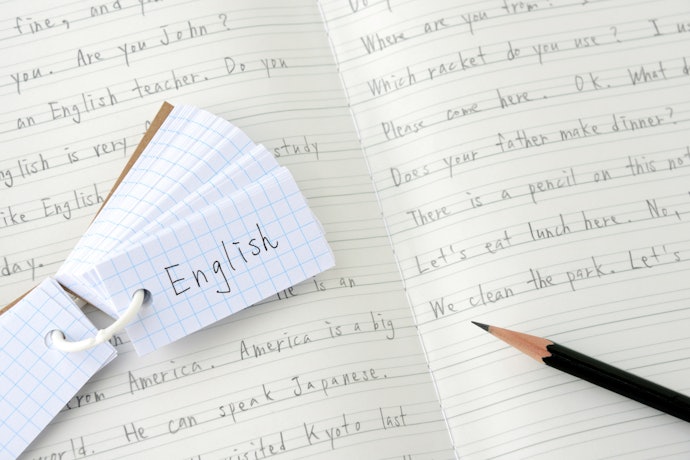 fine, and you?
you. Are you John?
an English teacher. Do you
English is very study
like English
day.
English
He is an
from America. America is a big
world. He can speak Japanese.
visited Kyoto last
Where are you from? I
Which racket do you use? I us
Please come here. OK. What d
Does your father make dinner?
There is a pencil on this not
Let's eat lunch here. No,
We clean the park. Let's